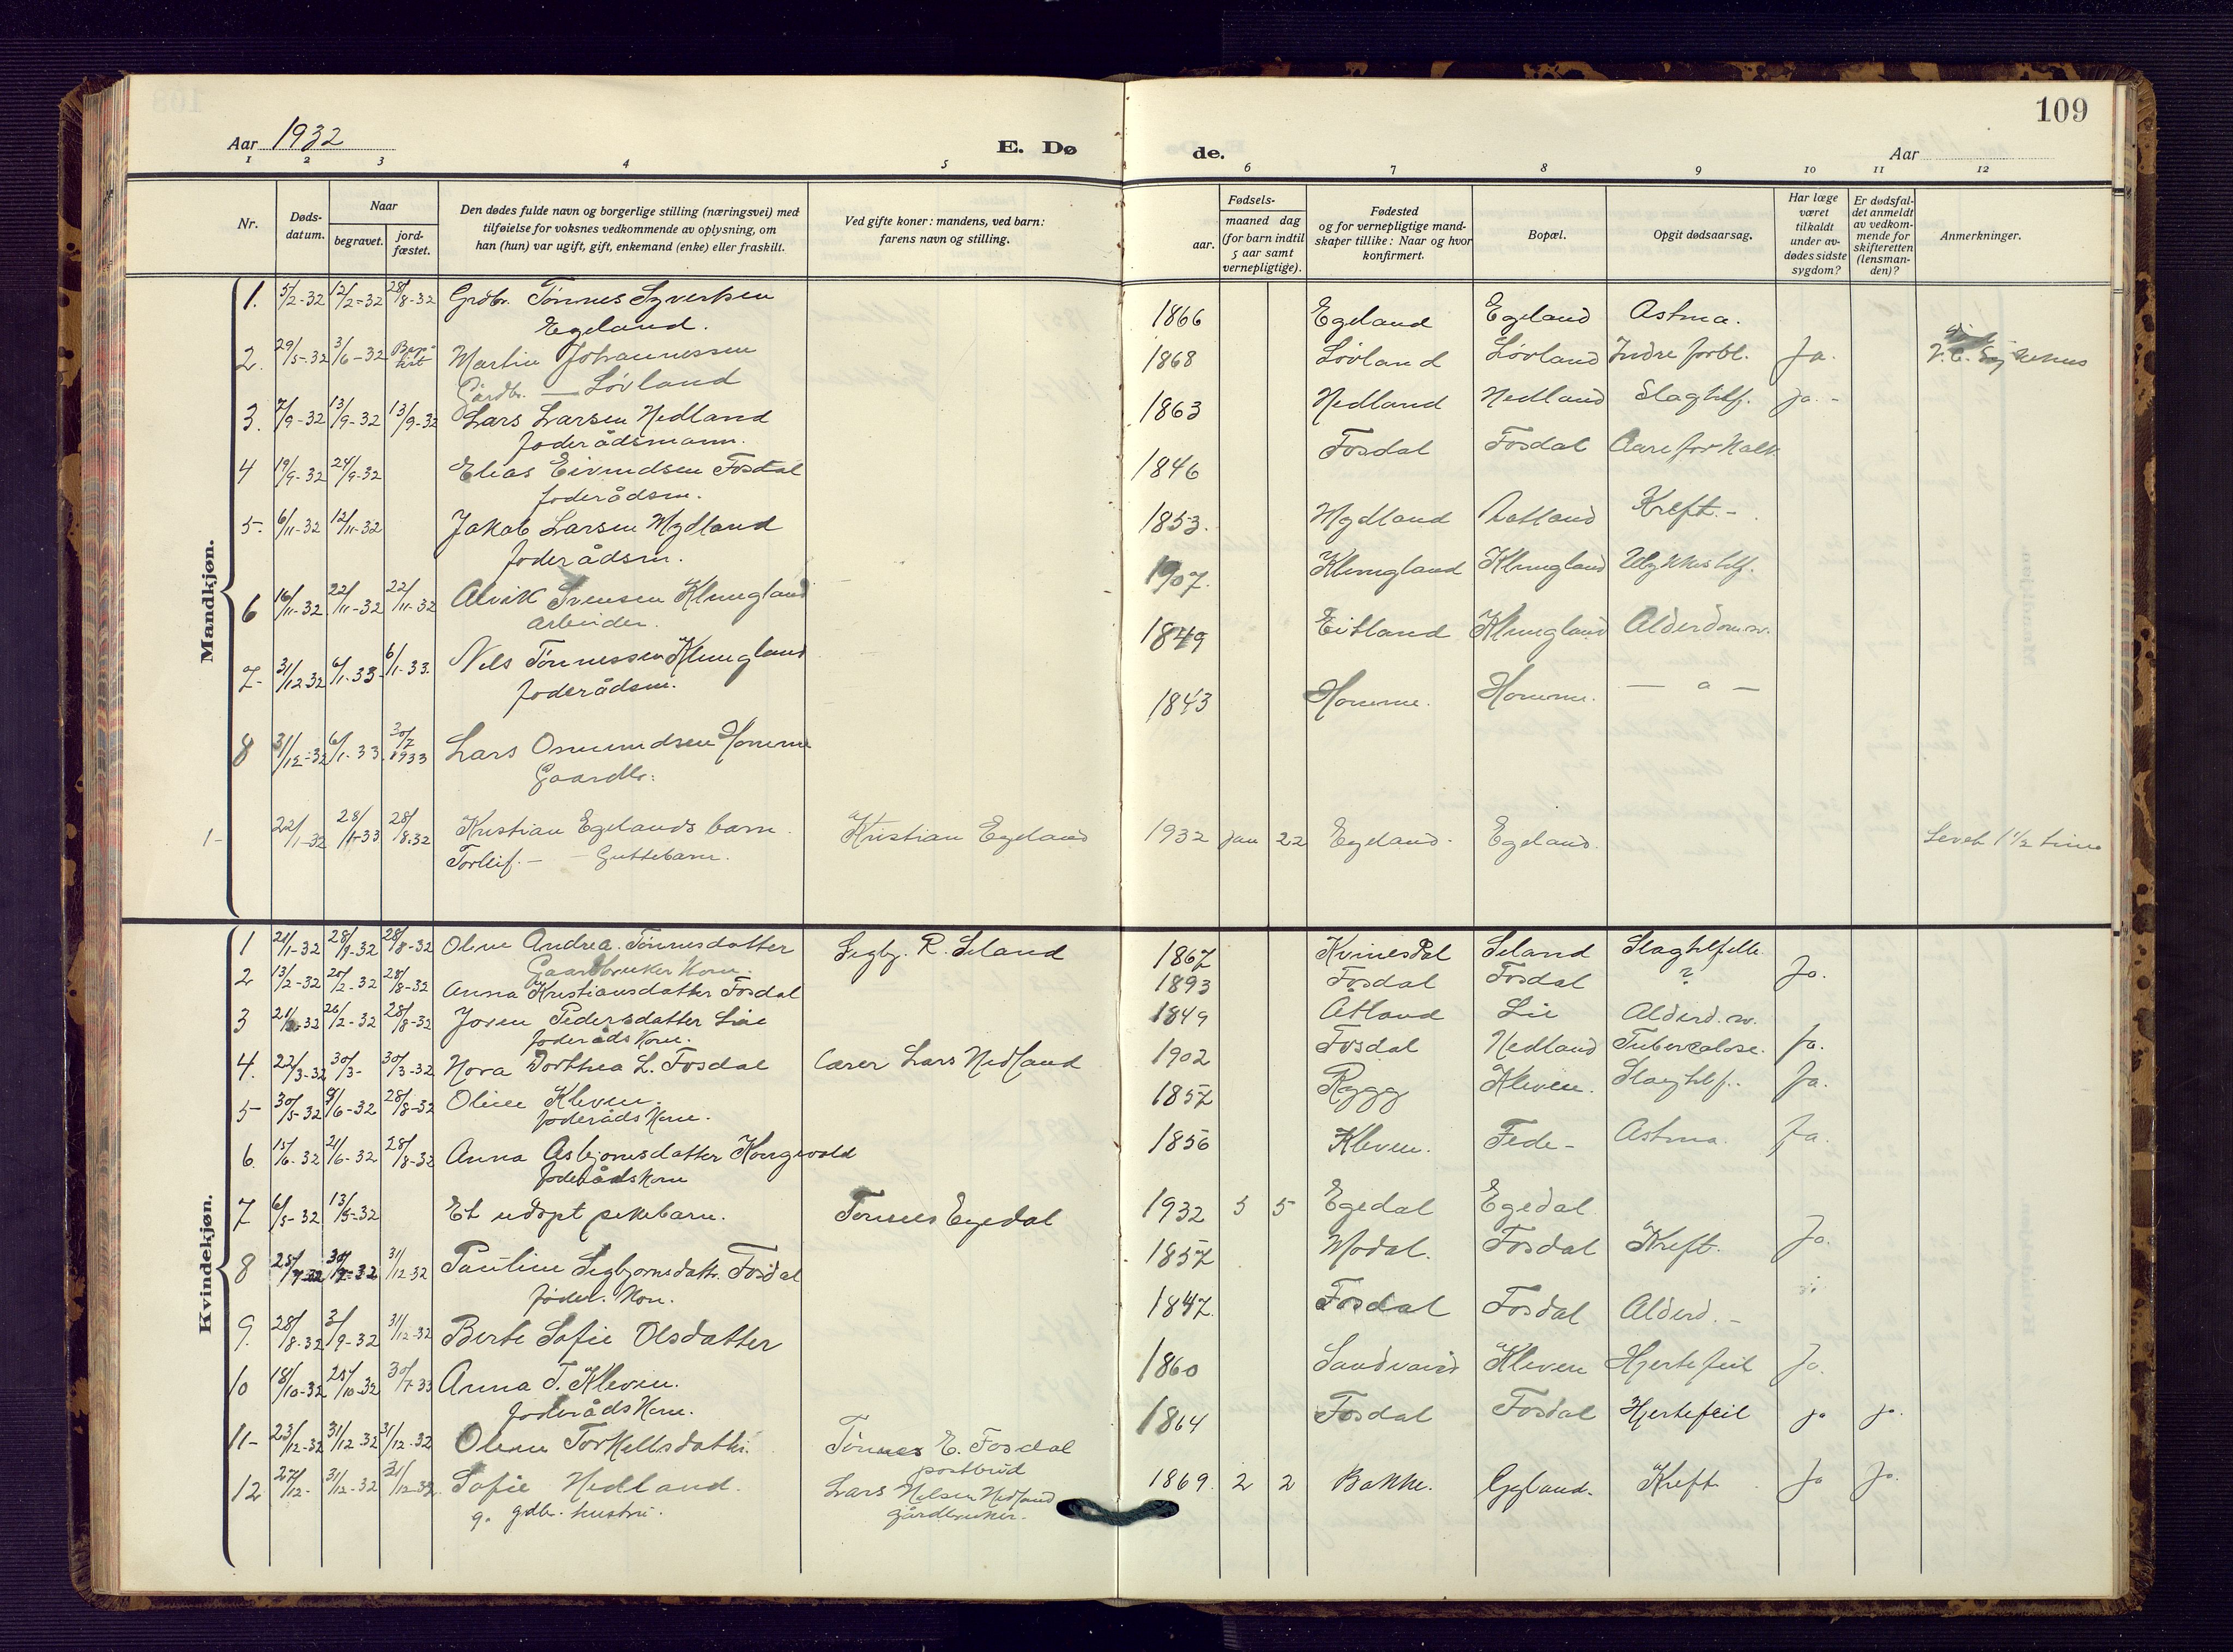 109
Aar 1932
E. Dø
de.
Aar
1 2 3 4 5 6 7 8 9 10 11 12
Nr.
Døds-
datum.
Naar
begravet.
jord-
fæstet.
Den dødes fulde navn og borgerlige stilling (næringsvei) med
tilføielse for voksnes vedkommende av oplysning, om
han (hun) var ugift, gift, enkemand (enke) eller fraskilt.
Ved gifte koner: mandens, ved barn:
farens navn og stilling.
Fødsels-
aar.
maaned dag
(for barn indtil
5 aar samt
vernepligtige).
Fødested
og for vernepligtige mand-
skaper tillike: Naar og hvor
konfirmert.
Bopæl.
Opgit dødsaarsag.
Har læge
været
tilkaldt
under av-
dødes sidste
sygdom?
Er dødsfal-
det anmeldt
av vedkom-
mende for
skifteretten
(lensman-
den)?
Anmerkninger.
Mandkjøn.
1. 5/2-32 12/2-32 28/8-32 Grdbr. Tønnes Syvertsen 1866 Egeland Egeland Astma.
Egeland.
2. 29/5-32 3/6-32 Martin Johannessen 1868 Løvland Løvland Indre forbl. Ja.
Gårdbr. — Løvland
3. 7/9-32 13/9-32 13/9-32 Lars Larsen Nedland 1863 Nedland Nedland Slagtilf. Ja. -
foderådsmann.
4 19/9-32 24/9-32 Elias Eivindsen Fosdal 1846 Fosdal Fosdal Aareforkalk
foderådsm.
5- 6/11-32 12/11-32 Jakob Larsen Mydland 1853. Mydland Kreft. -
foderådsm.
6 16/11-32 22/11-32 22/11-32 Alvik Svensen Klungland 1907. Klungland Klungland Ulykkestilf.
arbeider.
7- 31/12 32 6/1-33 6/1-33. Nils Tønnessen Klungland 1849 Eitland Klungland Alderdomsv.
foderådsm.
8 31/12-32 6/1-33 30/7 1933 Lars Osmundsen Homme 1843 Homme. Homme. — " —
Gaardbr.
1- 22/1-32 28/1-33 28/8.32 Kristian Egelands barn. Kristian Egeland 1932 jan 22 Egeland. Egeland. Levet 1 1/2 time
Torleif. - - Guttebarn.
Kvindekjøn.
1 21/1-32 28/8-32 Oline Andrea Tønnesdatter Sigbj. R. Seland 1867 Kvinesdal Seland Slagtilfelle
Gaardbruker Kone.
2 13/2-32 20/2-32 28/8-32 Anna Kristiansdatter Fosdal 1893 Fosdal Fosdal ? Ja.
3 26/2-32 28/8-32 Joren Pedersdatter Lie 1849 Atland Lie Alderd. sv.
foderåds Kone.
4. 22/3-32 30/3- 30/3-32 Nora Dorthea L. Fosdal Lærer Lars Nedland 1902 Fosdal Nedland Tuberculose. Ja.
5- 30/5-32 9/6-32 28/8-32 Oline Kleven. 1857 Rygg Kleven. Slagtilf. Ja.
foderåds Kone.
6. 15/6-32 21/6-32 28/8-32 Anna Asbjørnsdatter Kongevold 1856 Kleven. Fede- Astma. Ja.
foderåds Kone
7 6/5-32 13/5-32 Et udøpt pikebarn. Tønnes Egedal 1932 5 5 Egedal Egedal
8 31/12 32 Pauline Sigbjørnsdatr. Fosdal 1857 Modal. Fosdal Kreft. Ja.
foder. Kone.
9. 28/8-32 3/9-32 31/12-32 Berte Sofie Olsdatter 1847. Fosdal Fosdal Alderd. -
10 18/10-32 25/10-32 30/7-33 Anna T. Kleven. 1860 Kleven Hjertefeil Ja.
foderåds Kone.
11- 23/12-32 31/12-32 31/12-32 Olene Torkellsdatter. Tønnes E. Fosdal 1864 Fosdal Fosdal Hjertefeil ja ja.
postbud
12 27/12- 31/12-32 31/12-32 Sofie Nedland. Lars Nilsen Nedland 1869. 2 2 Bakke. Gyland. Kreft Ja Ja.
g. gdbr. hustru. gårdbruker.